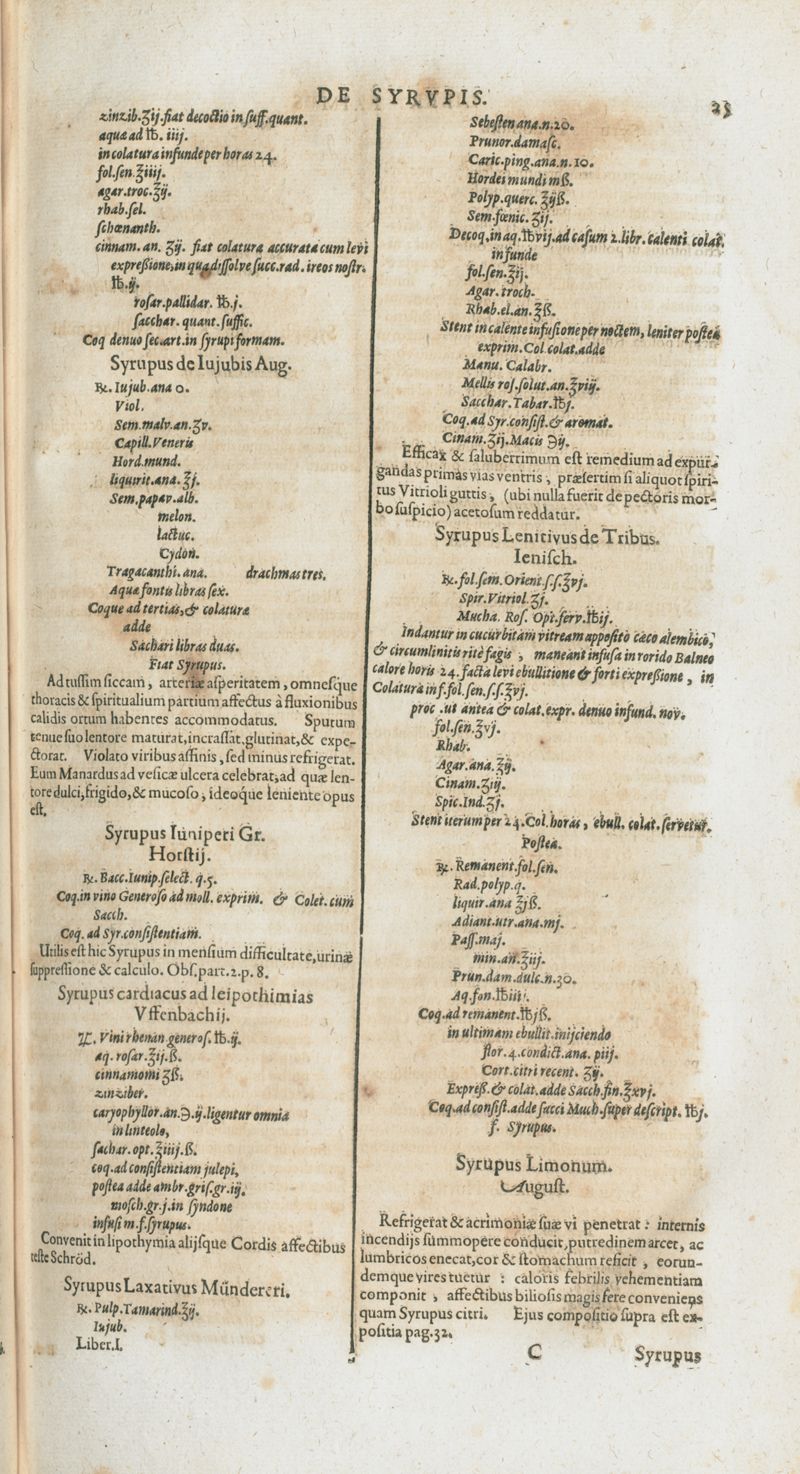 DE SYRVPIS. 25
zinzib.ʒij.fiat decoctio in ſuff.quant.
aquæ ad ℔. iiij.
in colatura infunde per horas 24.
fol.ſen.℥iiij.
agar.troc.℥ij.
rhab.ſel.
ſchœnanth.
cinnam. an. ʒij. fiat colatura accurata cum levi
expreßione,in qua diſſolve ſucc.rad. ireos noſtr.
℔.ij.
roſar.pallidar. ℔.j.
ſacchar. quant. ſuffic.
Coq denuo ſec.art.in ſyrupi formam.
Syrupus de Iujubis Aug.
℞. Iujub.ana 0.
Viol.
Sem.malv.an.ʒv.
Capill.Veneris
Hord.mund.
liquirit.ana.℥j.
Sem.papav.alb.
melon.
lactuc.
Cydon.
Tragacanthi. ana. drachmas tres.
Aquæ fontis libras ſex.
Coque ad tertias,& colaturæ
adde
Sachari libras duas.
Fiat Syrupus.
Ad tuſſim ſiccam, arteriæ aſperitatem, omneſque
thoracis & ſpiritualium partium affectus à fluxionibus
calidis ortum habentes accommodatus. Sputum
tenue ſuo lentore maturat,incraſſat,glutinat,& expe-
ctorat. Violato viribus affinis, ſed minus refrigerat.
Eum Manardus ad veſicæ ulcera celebrat,ad quæ len-
tore dulci,frigido,& mucoſo, ideoque leniente opus
eſt.
Syrupus Iuniperi Gr.
Horſtij.
℞. Bacc.Iunip.ſelect. q.5.
Coq.in vino Generoſo ad moll. exprim. & Colet.cum
Sacch.
Coq. ad Syr.conſiſtentiam.
Utilis eſt hic Syrupus in menſium difficultate,urinæ
ſuppreſſione & calculo. Obſ.part.2.p. 8.
Syrupus cardiacus ad leipothimias
Vffenbachij.
℞. Vini rhenan generoſ.℔.ij.
aq. roſar.℥ij.ß.
cinnamomi ʒß.
zinziber.
caryophyllor.an.℈.ij.ligentur omnia
in linteolo,
ſachar.opt.℥iiij.ß.
coq.ad conſiſtentiam julepi,
poſtea adde ambr.griſ.gr.iij.
moſch.gr.j.in ſyndone
infuſi m.f.ſyrupus.
Convenit in lipothymia alijſque Cordis affectibus
teſte Schröd.
Syrupus Laxativus Mündereri.
℞. Pulp.Tamarind.℥ij.
Iujub.
Liber.I.
Sebeſten ana.n.20.
Prunor.damaſc.
Caric.ping.ana.n.10.
Hordei mundi mß.
Polyp.querc. ℥ijß.
Sem.fœnic. ʒij.
Decoq.in aq.℔vij.ad caſum 2.libr.calenti colat.
infunde
fol.ſen.℥ij.
Agar.troch.
Rhab.el.an.℥ß.
Stent in calente infuſione per noctem, leniter poſtea
exprim.Col.colat.adde
Manu. Calabr.
Mellis roſ.ſolut.an.℥viij.
Sacchar.Tabar.℔j.
Coq.ad Syr.conſiſt.& aromat.
Cinam.ʒij.Macis ℈ij.
Efficax & ſaluberrimum eſt remedium ad expur-
gandas primas vias ventris, præſertim ſi aliquot ſpiri-
tus Vitrioli guttis, (ubi nulla fuerit de pectoris mor-
bo ſuſpicio) acetoſum reddatur.
Syrupus Lenitivus de Tribus.
Ieniſch.
℞.fol.ſem.Orient.ſ.ſ.℥vj.
Spir.Vitriol.ʒj.
Mucha. Roſ. Opt.ferv.℔ij.
Indantur in cucurbitam vitream appoſito cæco alembico,
& circumlinitis ritè fagis, maneant infuſa in rorido Balneo
calore horis 24.facta levi ebullitione & forti expreßione, in
Colatura inf.fol.ſen.ſ.ſ.℥vj.
proc.ut antea & colat.expr. denuo infund. nov.
fol.ſen.℥vj.
Rhab.
Agar.ana.℥ij.
Cinam.ʒiij.
Spic.Ind.ʒj.
Stent iterum per 24.Col.horas, ebull. colat.ſervetur.
Poſtea.
℞. Remanent.fol.ſen.
Rad.polyp.q.
liquir.ana ℥jß.
Adiant.utr.ana.mj.
Paſſ.maj.
min.an.℥iij.
Prun.dam.dulc.n.30.
Aq.fon.℔iiij.
Coq.ad remanent.℔jß.
in ultimam ebullit.inijciendo
flor.4.condict.ana. piij.
Cort.citri recent. ʒij.
Expreß.& colat.adde Sacch.fin.℥xvj.
Coq.ad conſiſt.adde ſucci Much.ſuper deſcript. ℔j.
f. Syrupus.
Syrupus Limonum.
Auguſt.
Refrigerat & acrimoniæ ſuæ vi penetrat: internis
incendijs ſummopere conducit,putredinem arcet, ac
lumbricos enecat,cor & ſtomachum reficit, eorun-
demque vires tuetur : caloris febrilis vehementiam
componit, affectibus bilioſis magis fere conveniens
quam Syrupus citri. Ejus compoſitio ſupra eſt ex-
poſitia pag.32.
C Syrupus